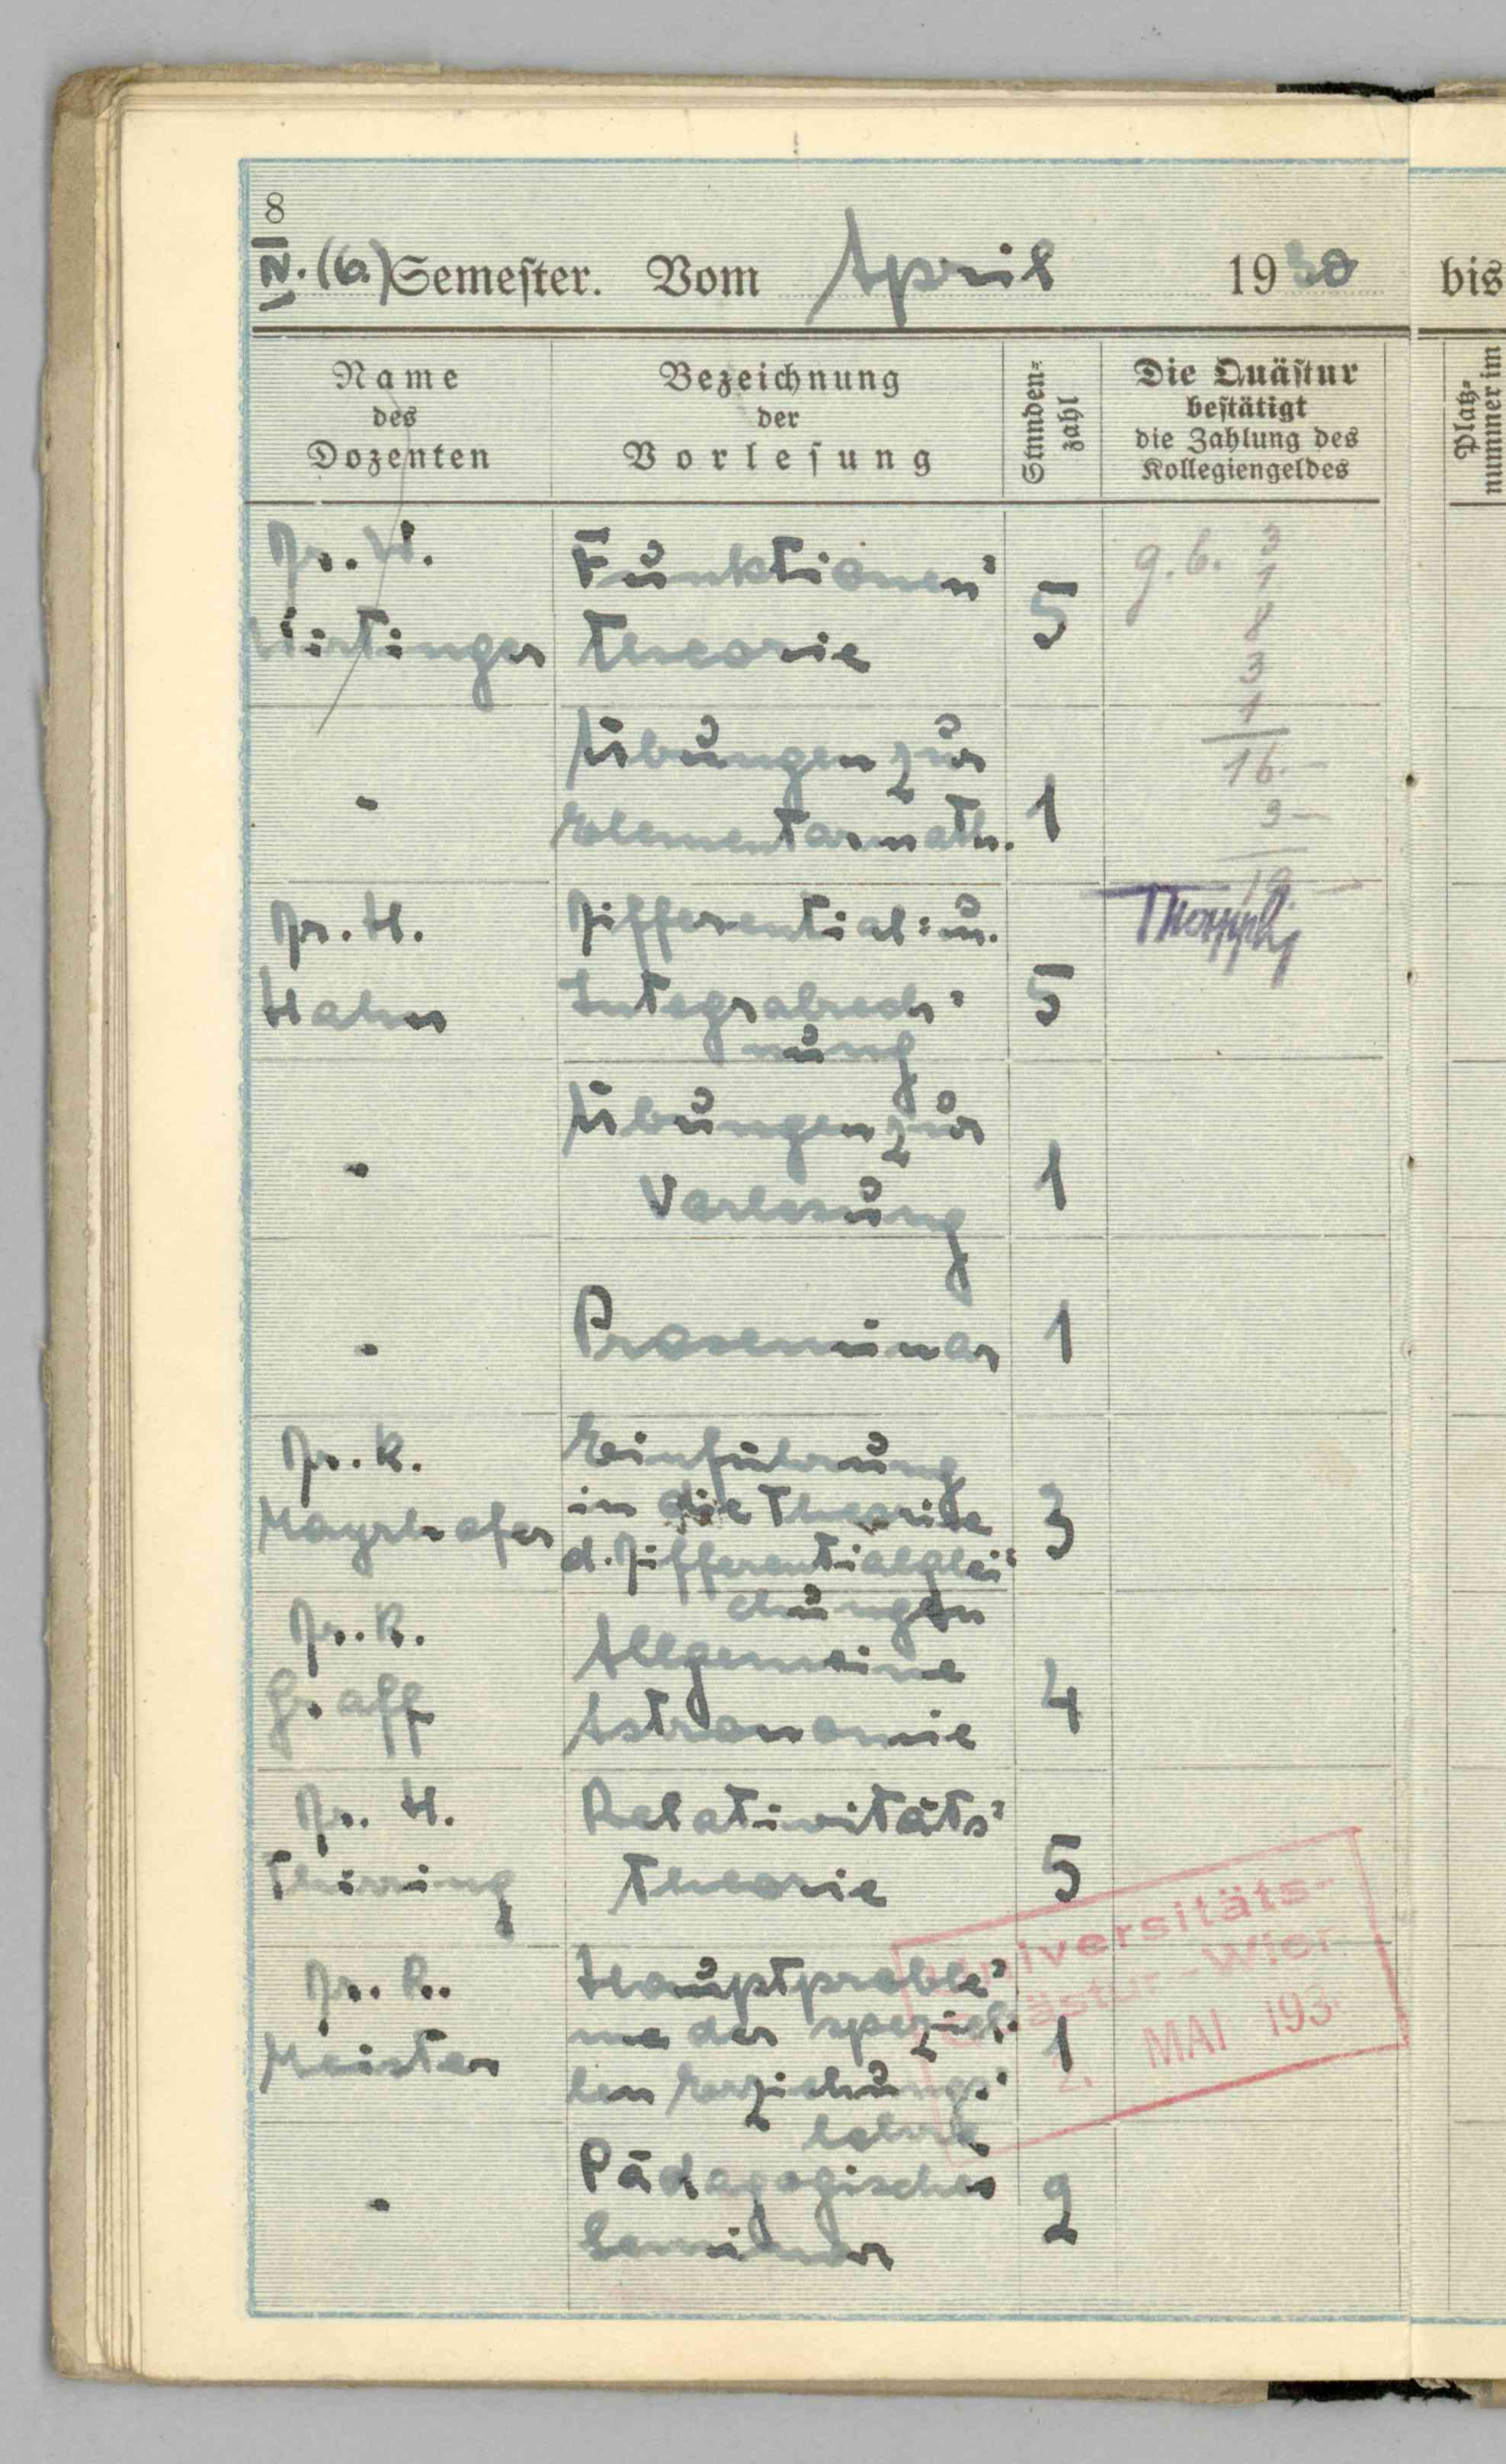 8
IV. (6.) Semester. Vom April 1930 bis
Name
des
Dozenten
Bezeichnung
der
Vorlesung
Stunden-
zahl
Die Quästur
bestätigt
die Zahlung des
Kollegiengeldes
Platz-
nummer im
Dr. W.
Wirtinger
Funktionen-
theorie
5
g. b. 3
1
8
3
1
16.—
3—
19.—
"
Übungen zur
Elementarmath.
1
Dr. H.
Hahn
Differential- u.
Integralrech-
nung
5
"
Übungen zur
Vorlesung
1
"
Proseminar
1
Dr. K.
Mayrhofer
Einführung
in die Theorie
d. Differentialglei-
chungen
3
Dr. K.
Graff
Allgemeine
Astronomie
4
Dr. H.
Thirring
Relativitäts-
theorie
5
Dr. R.
Meister
Hauptproble-
me der speziel-
len Erziehungs-
lehre
1
"
Pädagogisches
Seminar
2
Universitäts-
Quästur-Wien
2. MAI 193